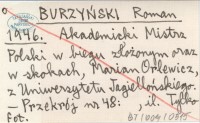 BURZYŃSKI Roman
1946. Akademicki Mistrz
Polski w biegu złożonym oraz
w skokach, Marian Orlewicz,
z Uniwersytetu Jagiellońskiego.
— Przekrój nr 48: , il. Tylko
fot.